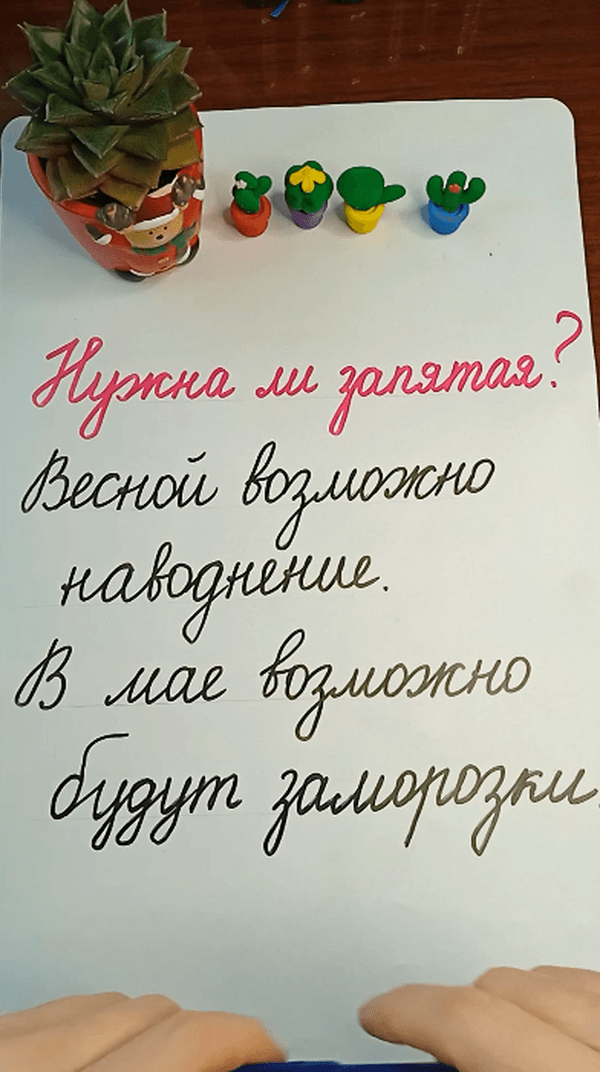 Нужна ли запятая?
Весной возможно
наводнение.
В мае возможно
будут заморозки.